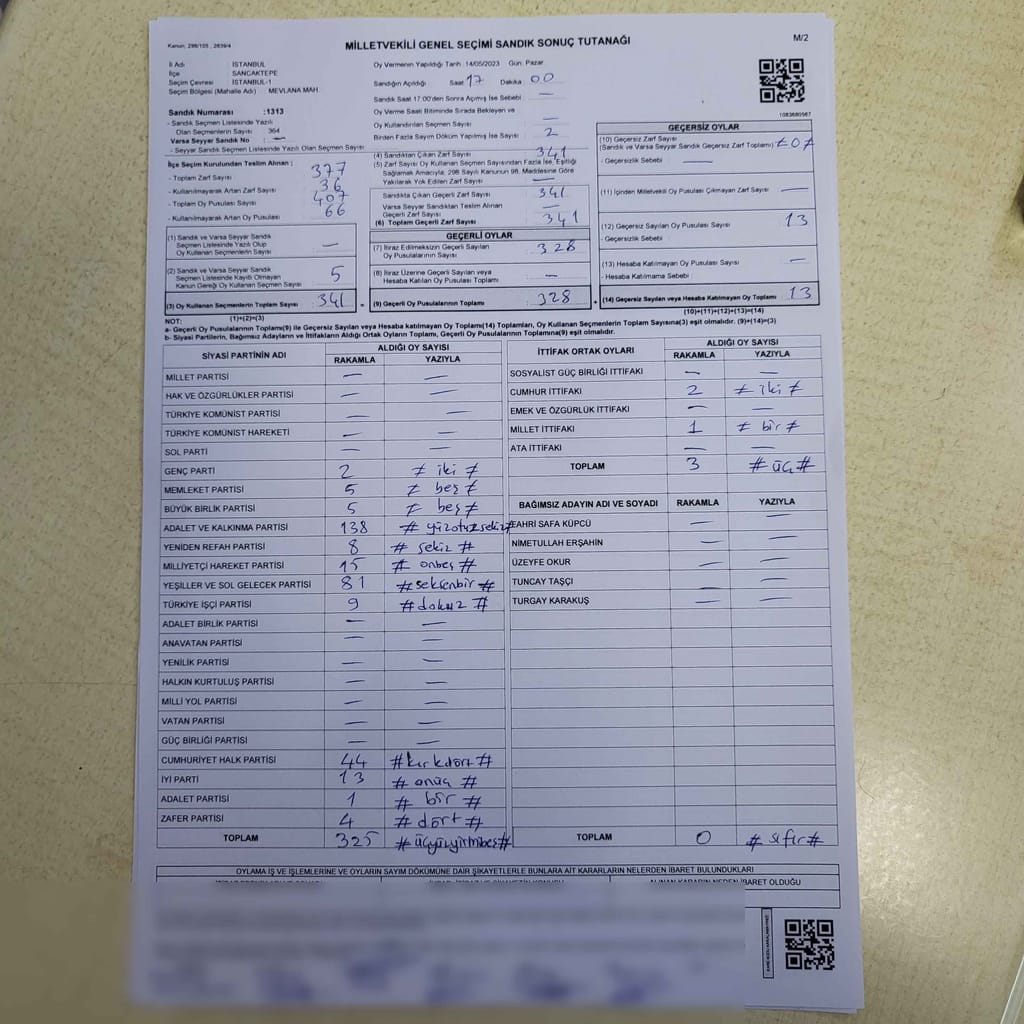 Kanun: 298/105 , 2839/4
MİLLETVEKİLİ GENEL SEÇİMİ SANDIK SONUÇ TUTANAĞI
M/2
İl Adı İSTANBUL
İlçe SANCAKTEPE
Seçim Çevresi İSTANBUL-1
Seçim Bölgesi (Mahalle Adı) MEVLANA MAH.
Oy Vermenin Yapıldığı Tarih :14/05/2023 Gün: Pazar
Sandığın Açıldığı Saat 17 Dakika 00
Sandık Saat 17.00'den Sonra Açılmış İse Sebebi : —
Oy Verme Saati Bitiminde Sırada Bekleyen ve
Oy Kullandırılan Seçmen Sayısı —
Birden Fazla Sayım Döküm Yapılmış İse Sayısı 2
1083680567
Sandık Numarası :1313
- Sandık Seçmen Listesinde Yazılı
Olan Seçmenlerin Sayısı 364
Varsa Seyyar Sandık No —
- Seyyar Sandık Seçmen Listesinde Yazılı Olan Seçmen Sayısı
İlçe Seçim Kurulundan Teslim Alınan ;
- Toplam Zarf Sayısı 377
- Kullanılmayarak Artan Zarf Sayısı 36
- Toplam Oy Pusulası Sayısı 407
- Kullanılmayarak Artan Oy Pusulası 66
(1) Sandık ve Varsa Seyyar Sandık
Seçmen Listesinde Yazılı Olup
Oy Kullanan Seçmenlerin Sayısı —
(2) Sandık ve Varsa Seyyar Sandık
Seçmen Listesinde Kayıtlı Olmayan
Kanun Gereği Oy Kullanan Seçmen Sayısı 5
(3) Oy Kullanan Seçmenlerin Toplam Sayısı 341
(1)+(2)=(3)
(4) Sandıktan Çıkan Zarf Sayısı 341
(5) Zarf Sayısı Oy Kullanan Seçmen Sayısından Fazla İse, Eşitliği
Sağlamak Amacıyla, 298 Sayılı Kanunun 98. Maddesine Göre
Yakılarak Yok Edilen Zarf Sayısı —
Sandıkta Çıkan Geçerli Zarf Sayısı 341
Varsa Seyyar Sandıktan Teslim Alınan
Geçerli Zarf Sayısı —
(6) Toplam Geçerli Zarf Sayısı 341
GEÇERLİ OYLAR
(7) İtiraz Edilmeksizin Geçerli Sayılan
Oy Pusulalarının Sayısı 328
(8) İtiraz Üzerine Geçerli Sayılan veya
Hesaba Katılan Oy Pusulası Toplamı —
= (9) Geçerli Oy Pusulalarının Toplamı 328
GEÇERSİZ OYLAR
(10) Geçersiz Zarf Sayısı
(Sandık ve Varsa Seyyar Sandık Geçersiz Zarf Toplamı) ≠0≠
- Geçersizlik Sebebi —
(11) İçinden Milletvekili Oy Pusulası Çıkmayan Zarf Sayısı —
(12) Geçersiz Sayılan Oy Pusulası Sayısı 13
- Geçersizlik Sebebi
(13) Hesaba Katılmayan Oy Pusulası Sayısı —
- Hesaba Katılmama Sebebi
+ (14) Geçersiz Sayılan veya Hesaba Katılmayan Oy Toplamı 13
(10)+(11)+(12)+(13)=(14)
NOT:
a- Geçerli Oy Pusulalarının Toplamı(9) ile Geçersiz Sayılan veya Hesaba katılmayan Oy Toplam(14) Toplamları, Oy Kullanan Seçmenlerin Toplam Sayısına(3) eşit olmalıdır. (9)+(14)=(3)
b- Siyasi Partilerin, Bağımsız Adayların ve İttifakların Aldığı Ortak Oyların Toplamı, Geçerli Oy Pusulalarının Toplamına(9) eşit olmalıdır.
SİYASİ PARTİNİN ADI ALDIĞI OY SAYISI
RAKAMLA YAZIYLA
MİLLET PARTİSİ — —
HAK VE ÖZGÜRLÜKLER PARTİSİ — —
TÜRKİYE KOMÜNİST PARTİSİ — —
TÜRKİYE KOMÜNİST HAREKETİ — —
SOL PARTİ — —
GENÇ PARTİ 2 ≠ iki ≠
MEMLEKET PARTİSİ 5 ≠ beş ≠
BÜYÜK BİRLİK PARTİSİ 5 ≠ beş ≠
ADALET VE KALKINMA PARTİSİ 138 # yüzotuzsekiz#
YENİDEN REFAH PARTİSİ 8 # sekiz #
MİLLİYETÇİ HAREKET PARTİSİ 15 # onbeş #
YEŞİLLER VE SOL GELECEK PARTİSİ 81 #seksenbir #
TÜRKİYE İŞÇİ PARTİSİ 9 #dokuz #
ADALET BİRLİK PARTİSİ — —
ANAVATAN PARTİSİ — —
YENİLİK PARTİSİ — —
HALKIN KURTULUŞ PARTİSİ — —
MİLLİ YOL PARTİSİ — —
VATAN PARTİSİ — —
GÜÇ BİRLİĞİ PARTİSİ — —
CUMHURİYET HALK PARTİSİ 44 #kırkdört #
İYİ PARTİ 13 # onüç #
ADALET PARTİSİ 1 # bir #
ZAFER PARTİSİ 4 # dört #
TOPLAM 325 #üçyüzyirmibeş#
İTTİFAK ORTAK OYLARI ALDIĞI OY SAYISI
RAKAMLA YAZIYLA
SOSYALİST GÜÇ BİRLİĞİ İTTİFAKI — —
CUMHUR İTTİFAKI 2 ≠ iki ≠
EMEK VE ÖZGÜRLÜK İTTİFAKI — —
MİLLET İTTİFAKI 1 ≠ bir ≠
ATA İTTİFAKI — —
TOPLAM 3 # üç #
BAĞIMSIZ ADAYIN ADI VE SOYADI RAKAMLA YAZIYLA
FAHRİ SAFA KÜPCÜ — —
NİMETULLAH ERŞAHİN — —
ÜZEYFE OKUR — —
TUNCAY TAŞÇI — —
TURGAY KARAKUŞ — —
TOPLAM 0 # sıfır #
OYLAMA İŞ VE İŞLEMLERİNE VE OYLARIN SAYIM DÖKÜMÜNE DAİR ŞİKAYETLERLE BUNLARA AİT KARARLARIN NELERDEN İBARET BULUNDUKLARI
ALINAN KARARIN NEDEN İBARET OLDUĞU